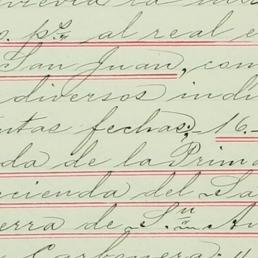 al real e
San Juan, com
diversos indi
ntas fechas; 16.
da de la Prim
cienda del Sa
erra de S.n An
Carbonera; y